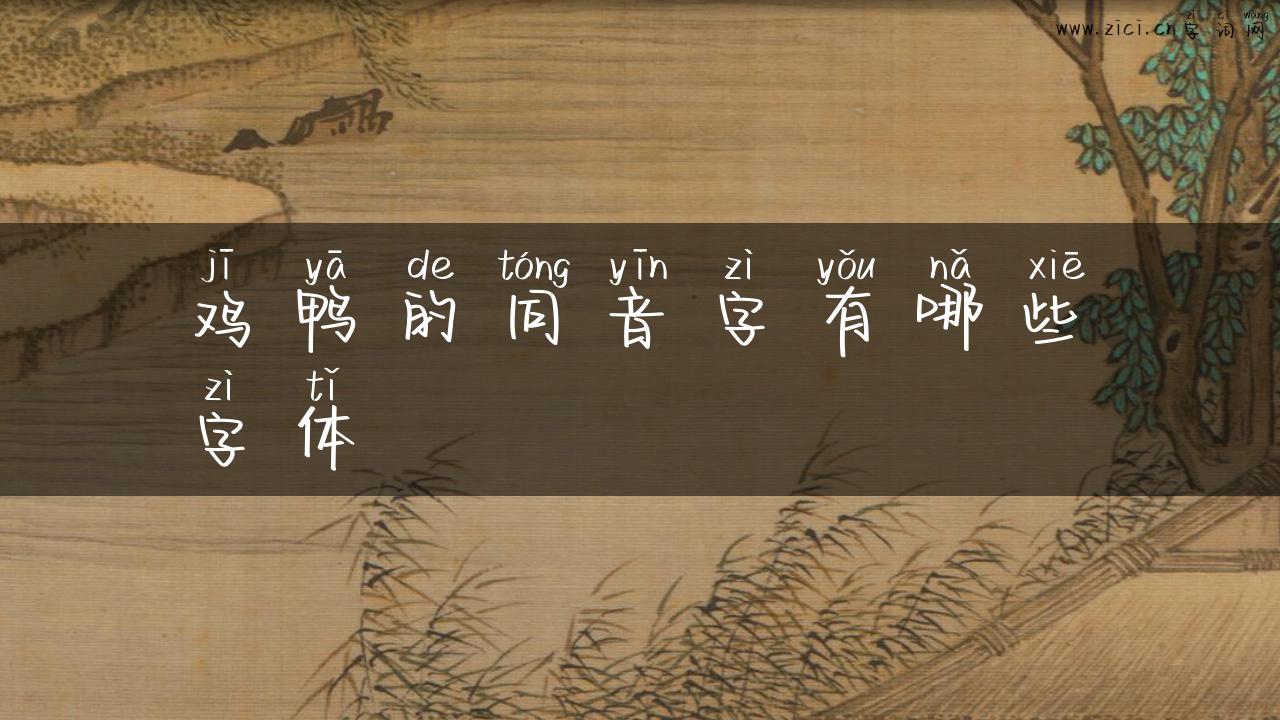 zì cí wǎng
www.zici.cn字词网
jī yā de tóng yīn zì yǒu nǎ xiē
鸡鸭的同音字有哪些
zì tǐ
字体